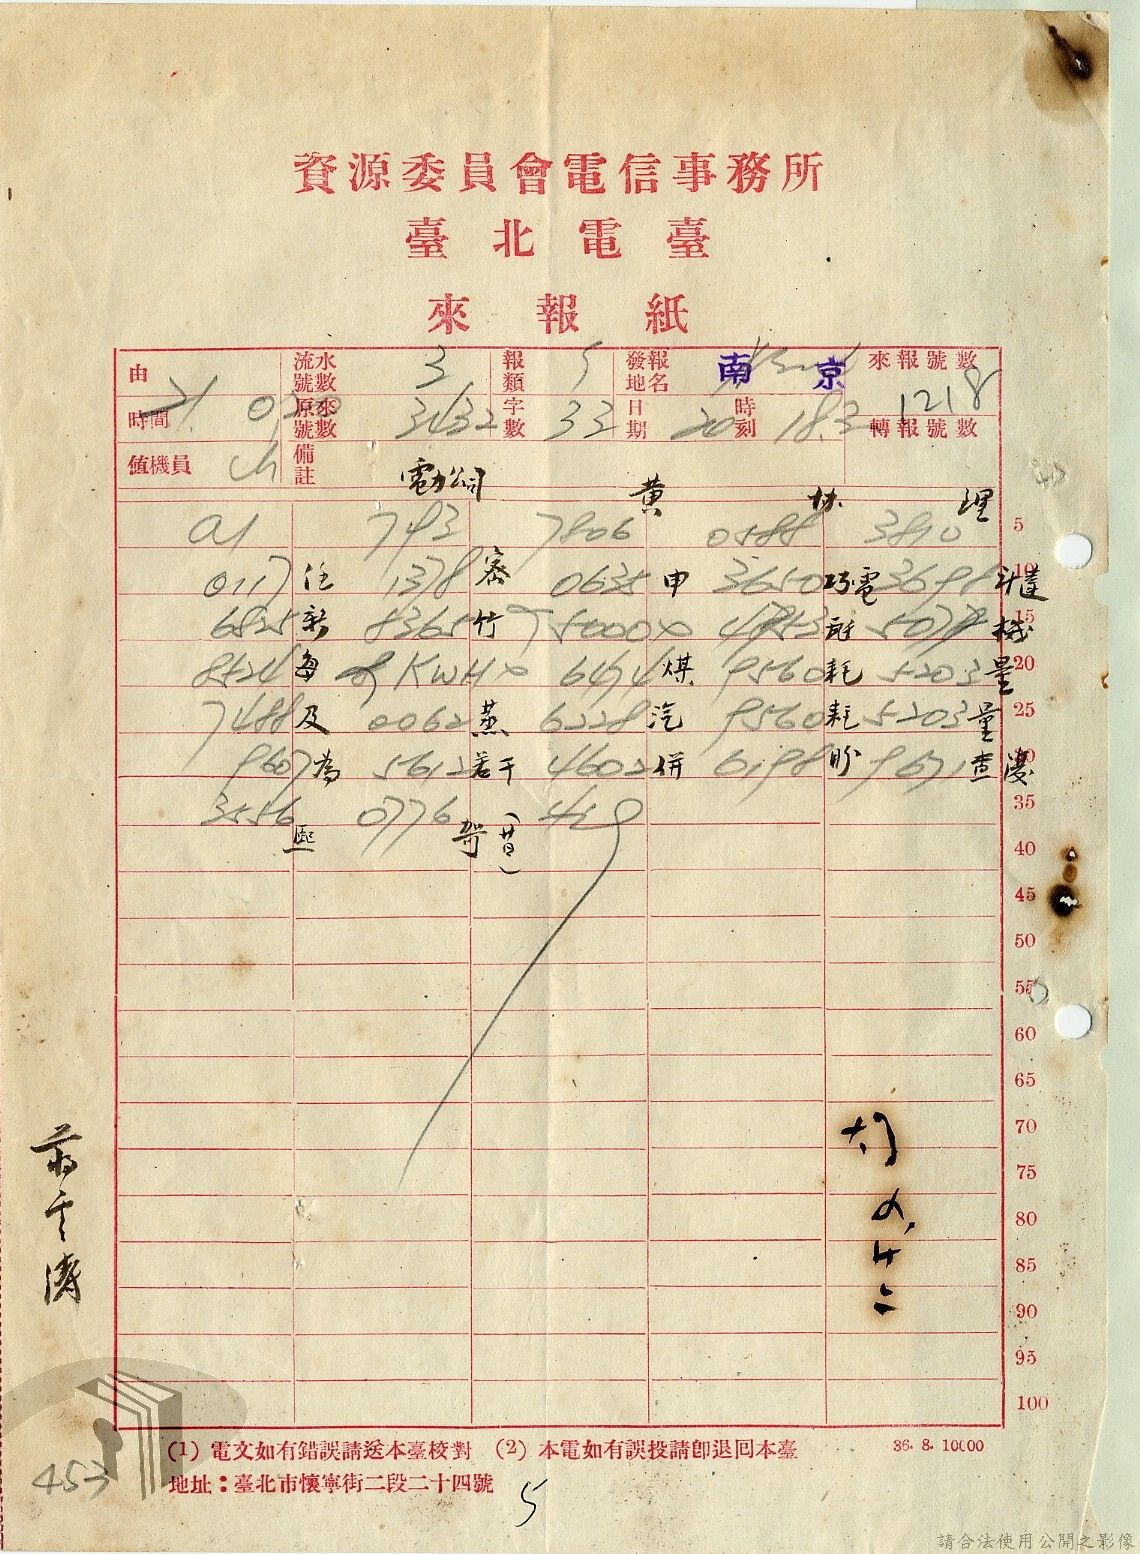 資源委員會電信事務所
臺北電臺
來報紙
由 流水號數 3 報類 5 發報地名 南京 來報號數 1218
時間 原來號數 3432 字數 33 日期 20 時刻 18.3 轉報號數
值機員 備註
電力公司 黃 林 理
7806 0588 3810 5
0117 任 1378 密 0635 申 3650 巧電 3698 斗蓬 10
6825 新 8365 竹 5000 15
8524 每 KWH 6474 煤 9560 耗 5203 量 20
7488 及 0062 蒸 6228 汽 9560 耗 5203 量 25
9607 為 5612 若干 4602 併 盼 9671 查復
3556 熙 0776 哿 (廿日) 35
40
45
50
55
60
65
70
75
80
85
90
95
100
(1) 電文如有錯誤請送本臺校對 (2) 本電如有誤投請卽退回本臺 36. 8. 10000
地址：臺北市懷寧街二段二十四號
453
5
請合法使用公開之影像